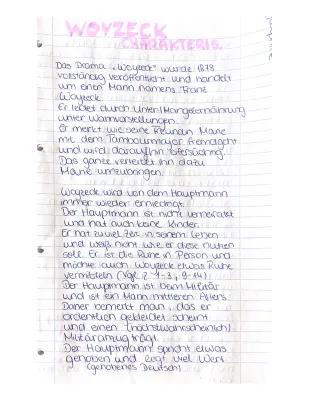 WOYZECK
CHARAKTERIS.
Das Drama "Woyzeck" wurde 1878
vollständig veröffentlicht und handelt
um einen Mann namens Franz
Woyzeck.
Er leidet durch Unter/Mangelernährung
unter Wahnvorstellungen.
Er merkt wie seine Freundin Marie
mit dem Tambourmajor fremdgeht
und wird daraufhin eifersüchtig.
Das ganze verleitet ihn dazu
Marie umzubringen.
Woyzeck wird von dem Hauptmann
immer wieder erniedrigt.
Der Hauptmann ist nicht verheiratet
und hat auch keine Kinder.
Er hat zuviel Zeit in seinem Leben
und weiß nicht wie er diese nutzen
soll. Er ist die Ruhe in Person und
möchte auch Woyzeck etwas Ruhe
vermitteln (Vgl. Z. 1-3, 9-14)
Der Hauptmann ist beim Militär
und ist ein Mann mittleren Alters.
Daher bemerkt man, das er
ordentlich gekleidet scheint
und einen (höchstwahrscheinlich)
Militäranzug trägt.
Der Hauptmann spricht etwas
gehoben und legt viel Wert
(gehobenes Deutsch)